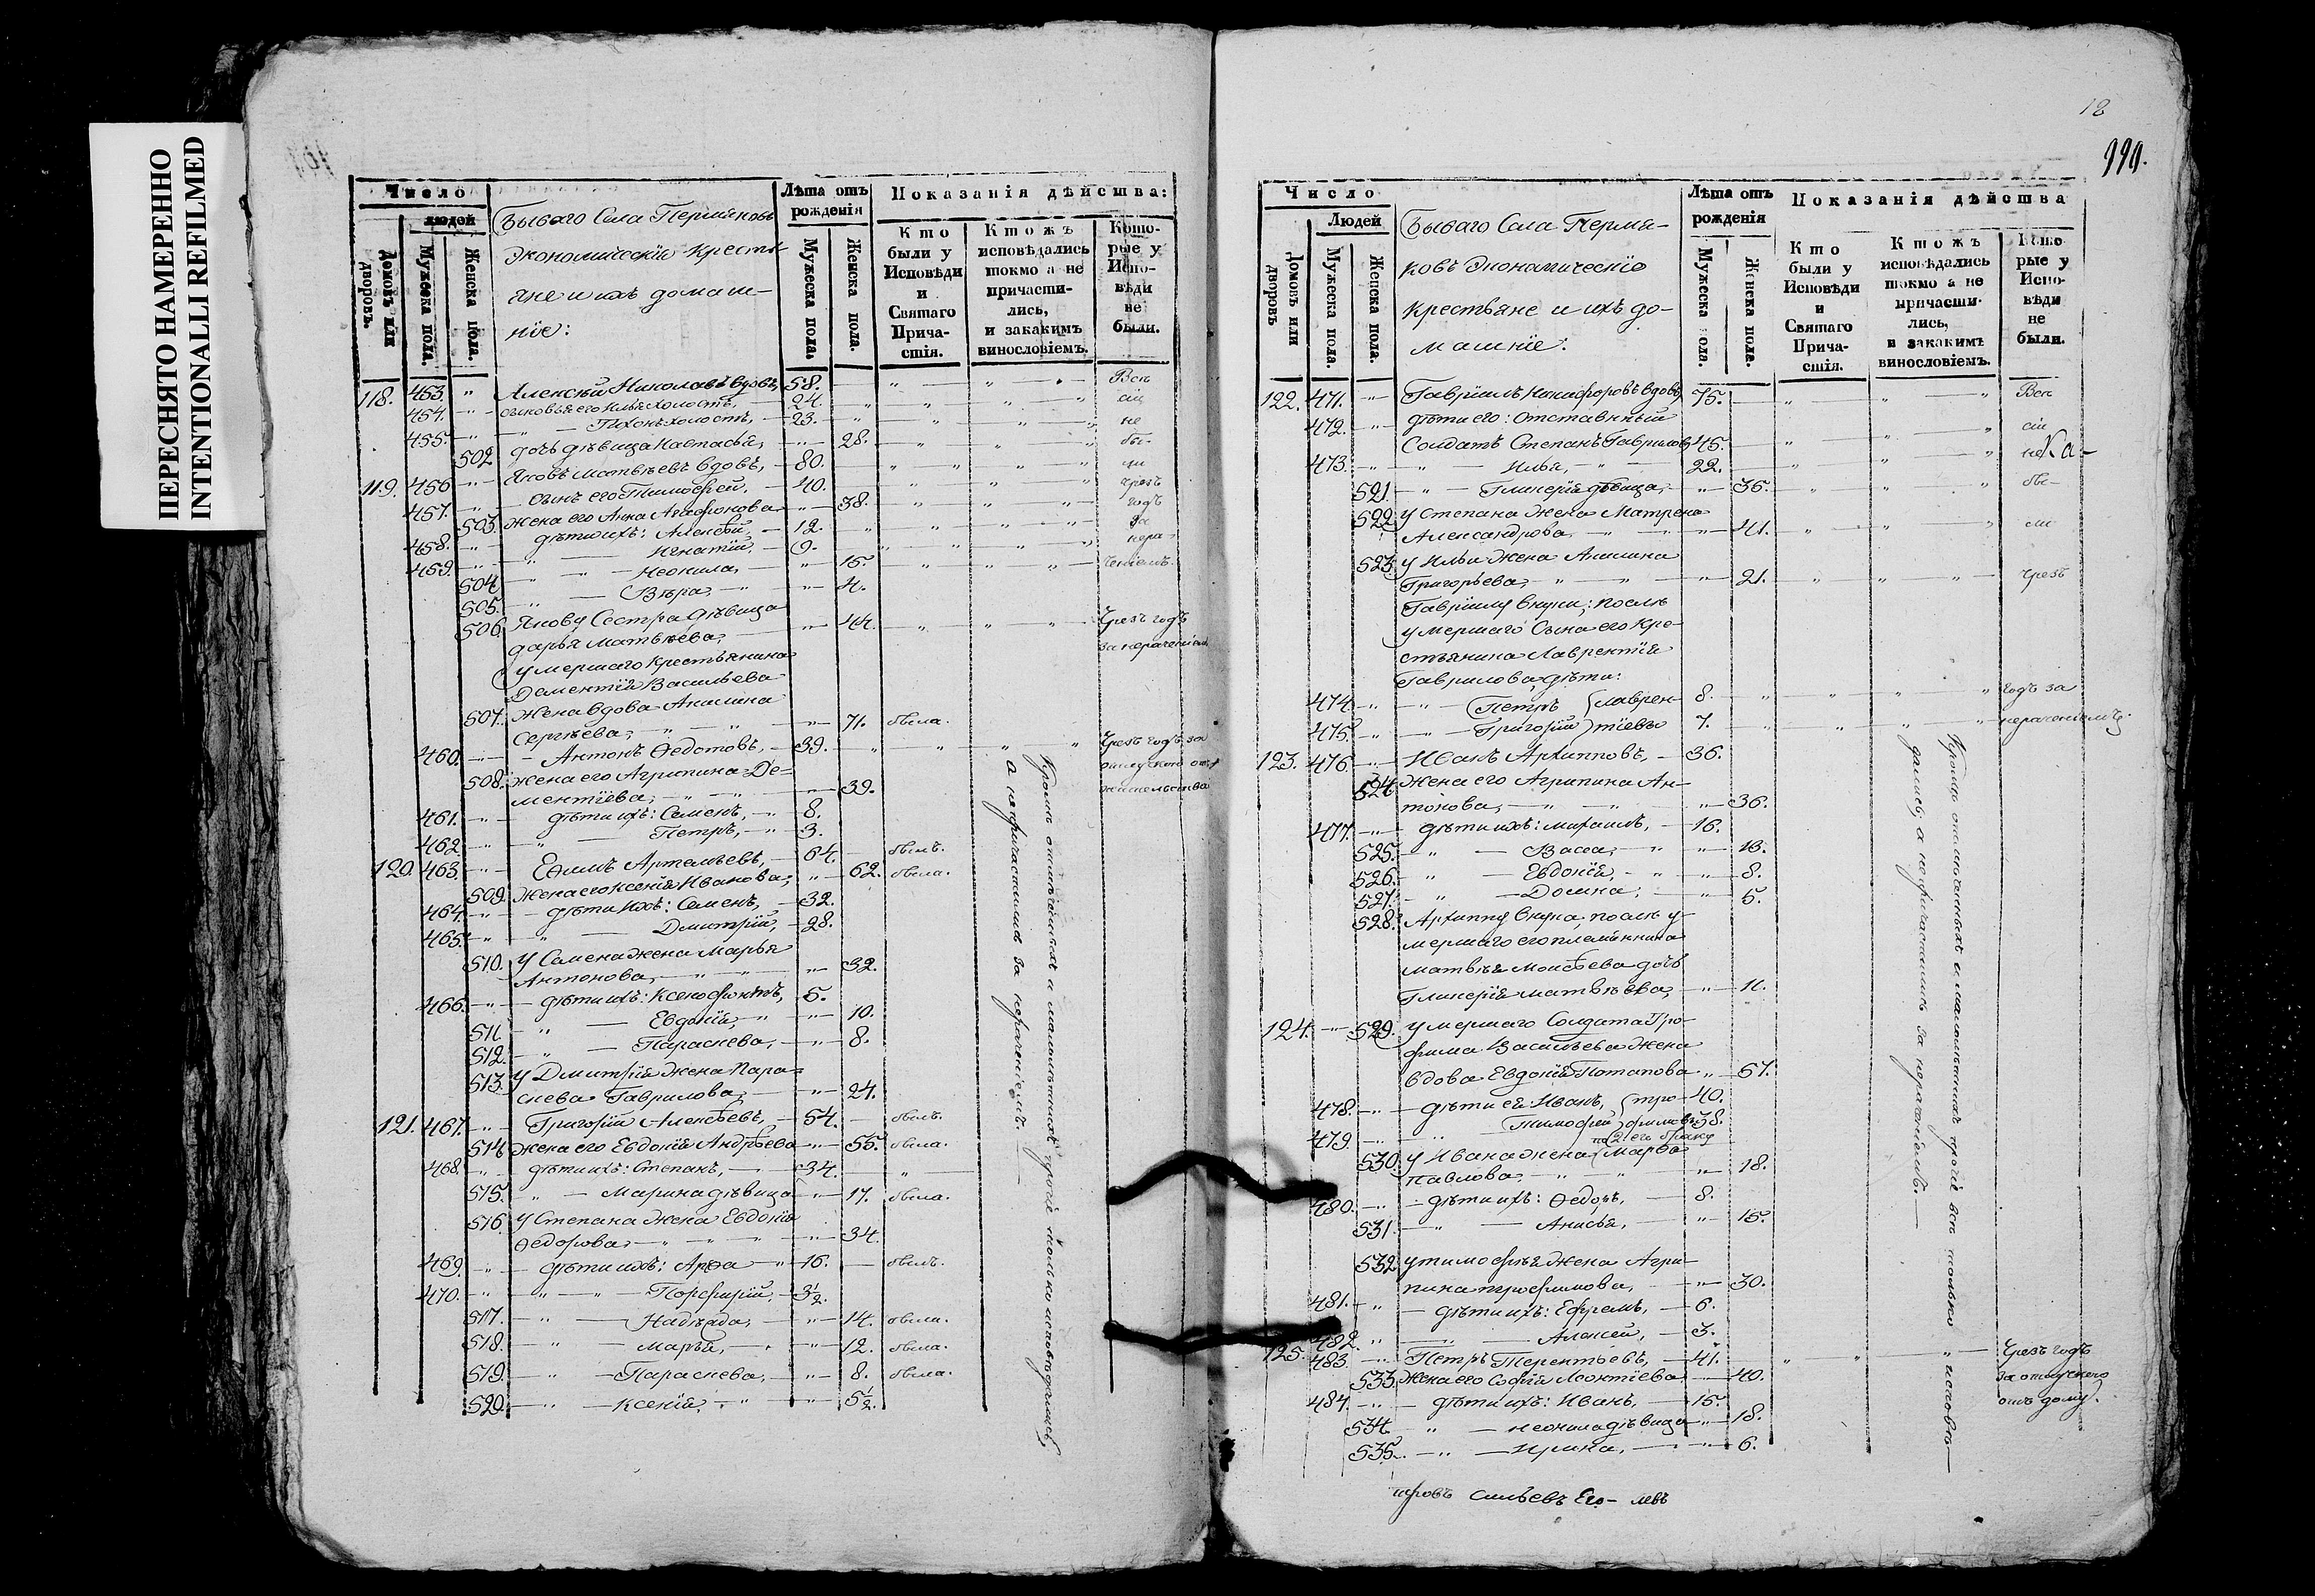 ПЕРЕСНЯТО НАМЕРЕННО
INTENTIONALLI REFILMED
Число
людей
Домовъ или дворовъ.
Мужеска пола.
Женска пола.
Бываго Села Пермяковъ
Экономическiя Кресть
яне и ихъ домаш-
нiе:
Лѣта отъ рожденiя
Мужеска пола.
Женска пола.
Показанiя дѣйства:
Кто были у Исповѣди и Святаго Прича-стiя.
Ктожъ исповѣдались токмо а не причасти-лись, и закакимъ винословiемъ.
Кото-рые у Испо-вѣди не были.
118. 453. Алексѣй Николаевъ вдовъ, 58. Все
454. сыновья его Илья холостъ, 24. сiи
455. Тихонъ холостъ, 23. не
502 дочь дѣвица Настасья, 28. бы-
119. 456 Яковъ Матвѣевъ вдовъ, 80. ли
457. сынъ его Тимофей, 40. чрезъ
503. Жена его Анна Агафонова 38. годъ
458. дѣти ихъ: Алексѣй, 12. за
459. Игнатiй, 9. нера-
504 Неонила, 15. ченiемъ.
505. Вѣра, 4.
506. Якову Сестра дѣвица
дарья Матвѣева, 44. Чрезъ годъ
за нераченiемъ
умершаго крестьянина
Дементiя Васильева
507. Жена вдова Акилина
Сергѣева, 71. была.
460. Антонъ Ѳедотовъ, 39. Чрезъ годъ за
508. Жена его Агрипина Де-
ментiева, 39.
461. дѣти ихъ: Семенъ, 8.
462. Петръ, 3.
120. 463. Еѳимъ Артемьевъ, 64. былъ.
509. Жена его Ксенiя Иванова, 62. была.
464. дѣти ихъ: Семенъ, 32.
465. Дмитрiй, 28.
510. У Семена жена Марья
Антонова, 32.
466. дѣти ихъ: Ксенофонтъ, 5.
511. Евдокiя, 10.
512. Параскева, 8.
513. У Дмитрiя жена Пара-
скева Гаврилова, 24.
121. 467. Григорiй Алексѣевъ, 54. былъ.
514 Жена его Евдокiя Андрѣева 55. была.
468. дѣти ихъ: Степанъ, 34.
515. Марина дѣвица 17. была.
516. У Степана жена Евдокiя
Ѳедорова, 34.
469. дѣти ихъ: Арѳа 16. былъ.
470. Порфирiй, 3½.
517. Надежда, 14. была.
518. Марья, 12. была.
519. Параскева, 8. была.
520. Ксенiя, 5½.
Кромѣ отмѣченныхъ и малолѣтныхъ прочiе только исповѣдались,
а не причастились за нераченiемъ.
12
990.
Число
Людей
Домовъ или дворовъ
Мужеска пола.
Женска пола.
Бываго Села Пермя-
ковъ Экономическiе
крестьяне и ихъ до-
машнiе:
Лѣта отъ рожденiя
Мужеска пола.
Женска пола.
Показанiя дѣйства
Кто были у Исповѣди и Святаго Прича-стiя.
Ктожъ исповѣдались токмо а не причасти-лись, и закакимъ винословiемъ.
Кото-рые у Испо-вѣди не были.
122. 471. Гаврiилъ Никифоровъ вдовъ, 75. Все
472. дѣти его: отставный сiи
Солдатъ Степанъ Гавриловъ 45.
473. Илья, 22. не
521. Гликерiя дѣвица, 36. бы-
522 У Степана жена Матрена
Александрова, 41. ли
523. У Ильи жена Акилина
Григорьева, 21. чрезъ
Гаврiилу внуки: послѣ
умершаго Сына его Кре-
стьянина Лаврентiя
Гаврилова дѣти:
474. Петръ Лаврен- 8. годъ за
475. Григорiй тiевы 7. нераченiемъ.
123. 476. Иванъ Архипповъ, 36.
524 Жена его Агрипина Ан-
тонова, 36.
477. дѣти ихъ: Михаилъ, 16.
525. Васса, 13.
526. Евдокiя, 8.
527. Домна, 5.
528. Архиппу внука, послѣ у-
мершаго его племянника
Матвѣя Моисѣева дочь
Гликерiя Матвѣева, 11.
124. 529. Умершаго Солдата Тро-
фима Васильева жена
вдова Евдокiя Потапова 67.
478. дѣти ея: Иванъ, Тро- 40.
479. Тимофей фимовы 38.
по 2 его браку
530. У Ивана жена Марфа
Павлова, 18.
480. дѣти ихъ: Ѳедоръ, 8.
531. Анисья, 15.
532 У Тимофѣя жена Агри-
пина Трофимова, 30.
481. дѣти ихъ: Ефремъ, 6.
482. Алексей, 3.
125. 483. Петръ Терентьевъ, 41. Чрезъ годъ
533. Жена его Софiя Леонтiева 40. за отлучкою
484. дѣти ихъ: Иванъ, 15. отъ дому.
534. Неонила дѣвица 18.
535. Ирина, 6.
Кромѣ отмѣченныхъ и малолѣтныхъ прочiе всѣ только исповѣ-
дались, а не причастились за нераченiемъ.